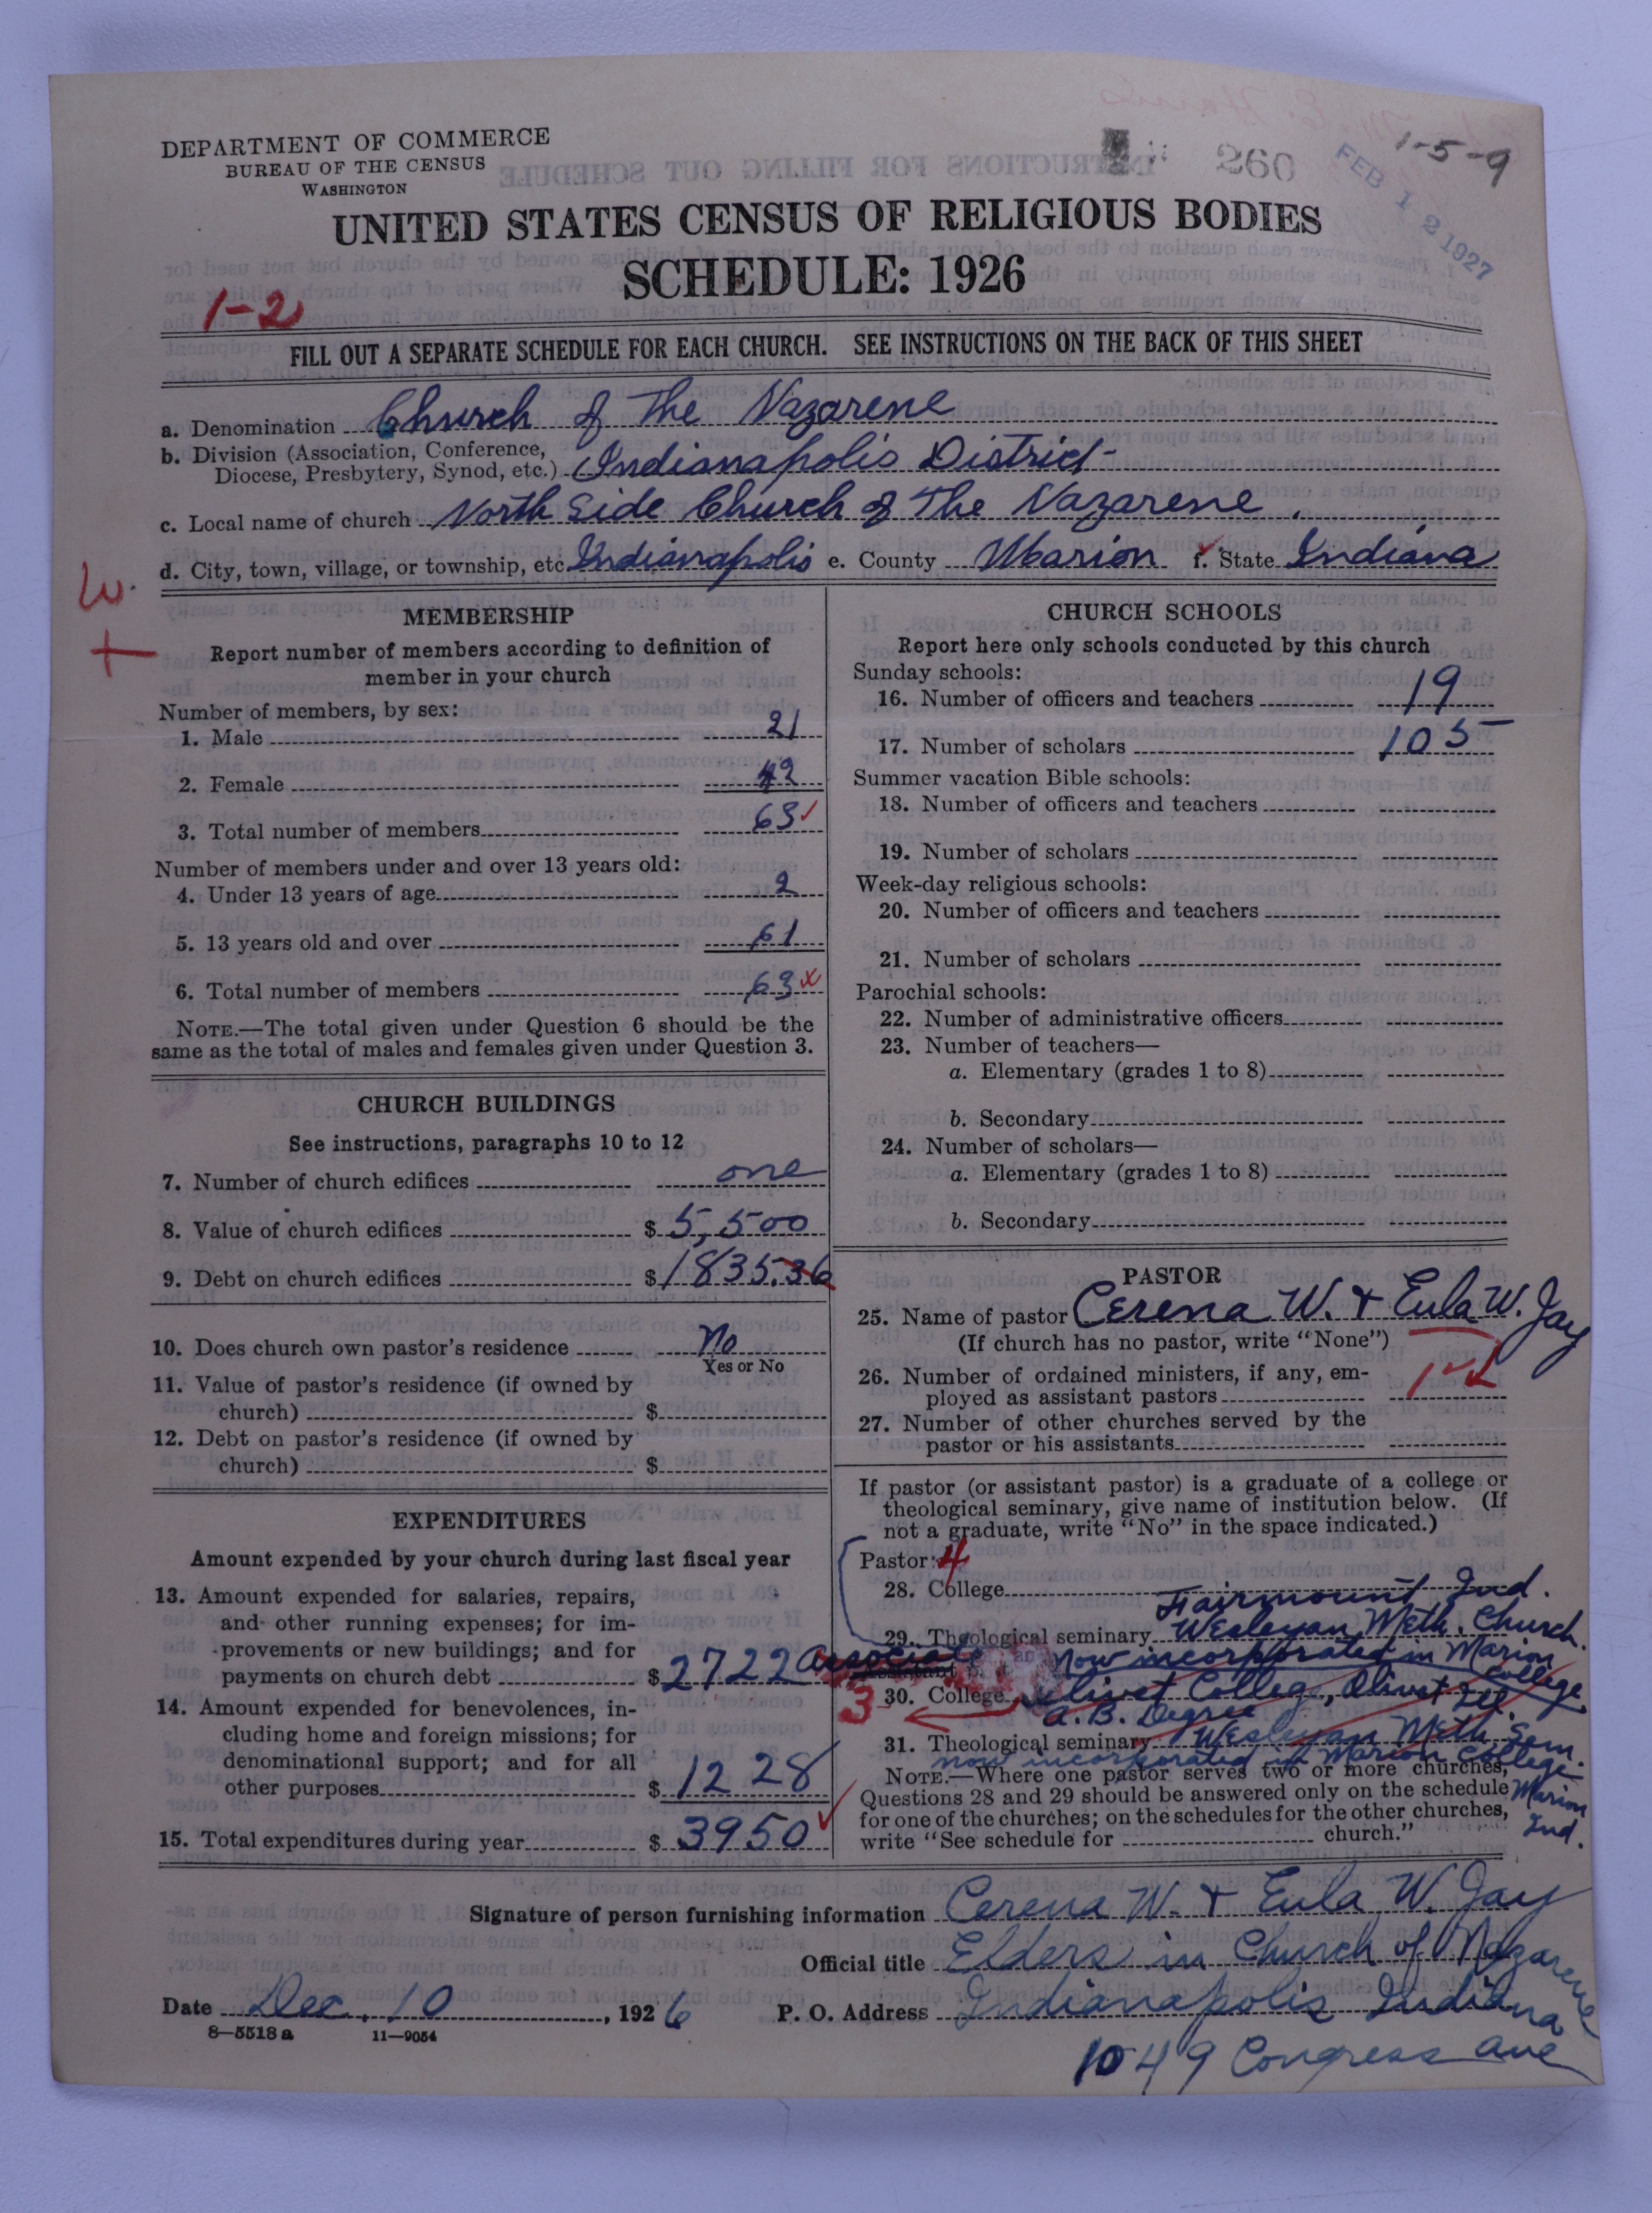 DEPARTMENT OF COMMERCE
BUREAU OF THE CENSUS
WASHINGTON
260
FEB 12 1927
1-5-9
UNITED STATES CENSUS OF RELIGIOUS BODIES
SCHEDULE: 1926
1-2
FILL OUT A SEPARATE SCHEDULE FOR EACH CHURCH. SEE INSTRUCTIONS ON THE BACK OF THIS SHEET
a. Denomination Church of The Nazarene
b. Division (Association, Conference,
Diocese, Presbytery, Synod, etc.) Indianapolis District
c. Local name of church North Side Church of The Nazarene.
d. City, town, village, or township, etc Indianapolis e. County Marion f. State Indiana
W.
+
MEMBERSHIP
Report number of members according to definition of
member in your church
Number of members, by sex:
1. Male 21
2. Female 42
3. Total number of members 63 ✓
Number of members under and over 13 years old:
4. Under 13 years of age 2
5. 13 years old and over 61
6. Total number of members 63 x
NOTE.—The total given under Question 6 should be the
same as the total of males and females given under Question 3.
CHURCH BUILDINGS
See instructions, paragraphs 10 to 12
7. Number of church edifices one
8. Value of church edifices $ 5,500
9. Debt on church edifices $ 1835.36
10. Does church own pastor's residence No
Yes or No
11. Value of pastor's residence (if owned by
church) $
12. Debt on pastor's residence (if owned by
church) $
EXPENDITURES
Amount expended by your church during last fiscal year
13. Amount expended for salaries, repairs,
and other running expenses; for im-
provements or new buildings; and for
payments on church debt $ 2722
14. Amount expended for benevolences, in-
cluding home and foreign missions; for
denominational support; and for all
other purposes $ 1228
15. Total expenditures during year $ 3950 ✓
CHURCH SCHOOLS
Report here only schools conducted by this church
Sunday schools:
16. Number of officers and teachers 19
17. Number of scholars 105
Summer vacation Bible schools:
18. Number of officers and teachers
19. Number of scholars
Week-day religious schools:
20. Number of officers and teachers
21. Number of scholars
Parochial schools:
22. Number of administrative officers
23. Number of teachers—
a. Elementary (grades 1 to 8)
b. Secondary
24. Number of scholars—
a. Elementary (grades 1 to 8)
b. Secondary
PASTOR
25. Name of pastor Cerena W. & Eula W. Jay
(If church has no pastor, write "None")
26. Number of ordained ministers, if any, em-
ployed as assistant pastors 1-
27. Number of other churches served by the
pastor or his assistants
If pastor (or assistant pastor) is a graduate of a college or
theological seminary, give name of institution below. (If
not a graduate, write "No" in the space indicated.)
Pastor: 4
28. College
Fairmount Ind.
29. Theological seminary Wesleyan Meth. Church.
Associate now incorporated in Marion College
3 30. College Olivet College, Olivet Ill.
A.B. Degree
31. Theological seminary Wesleyan Meth. Sem.
now incorporated in Marion College
Marion Ind.
NOTE.—Where one pastor serves two or more churches,
Questions 28 and 29 should be answered only on the schedule
for one of the churches; on the schedules for the other churches,
write "See schedule for church."
Signature of person furnishing information Cerena W. & Eula W. Jay
Official title Elders in Church of Nazarene
Date Dec. 10, 1926 P. O. Address Indianapolis Indiana
8—5518 a 11—9054
1049 Congress Ave